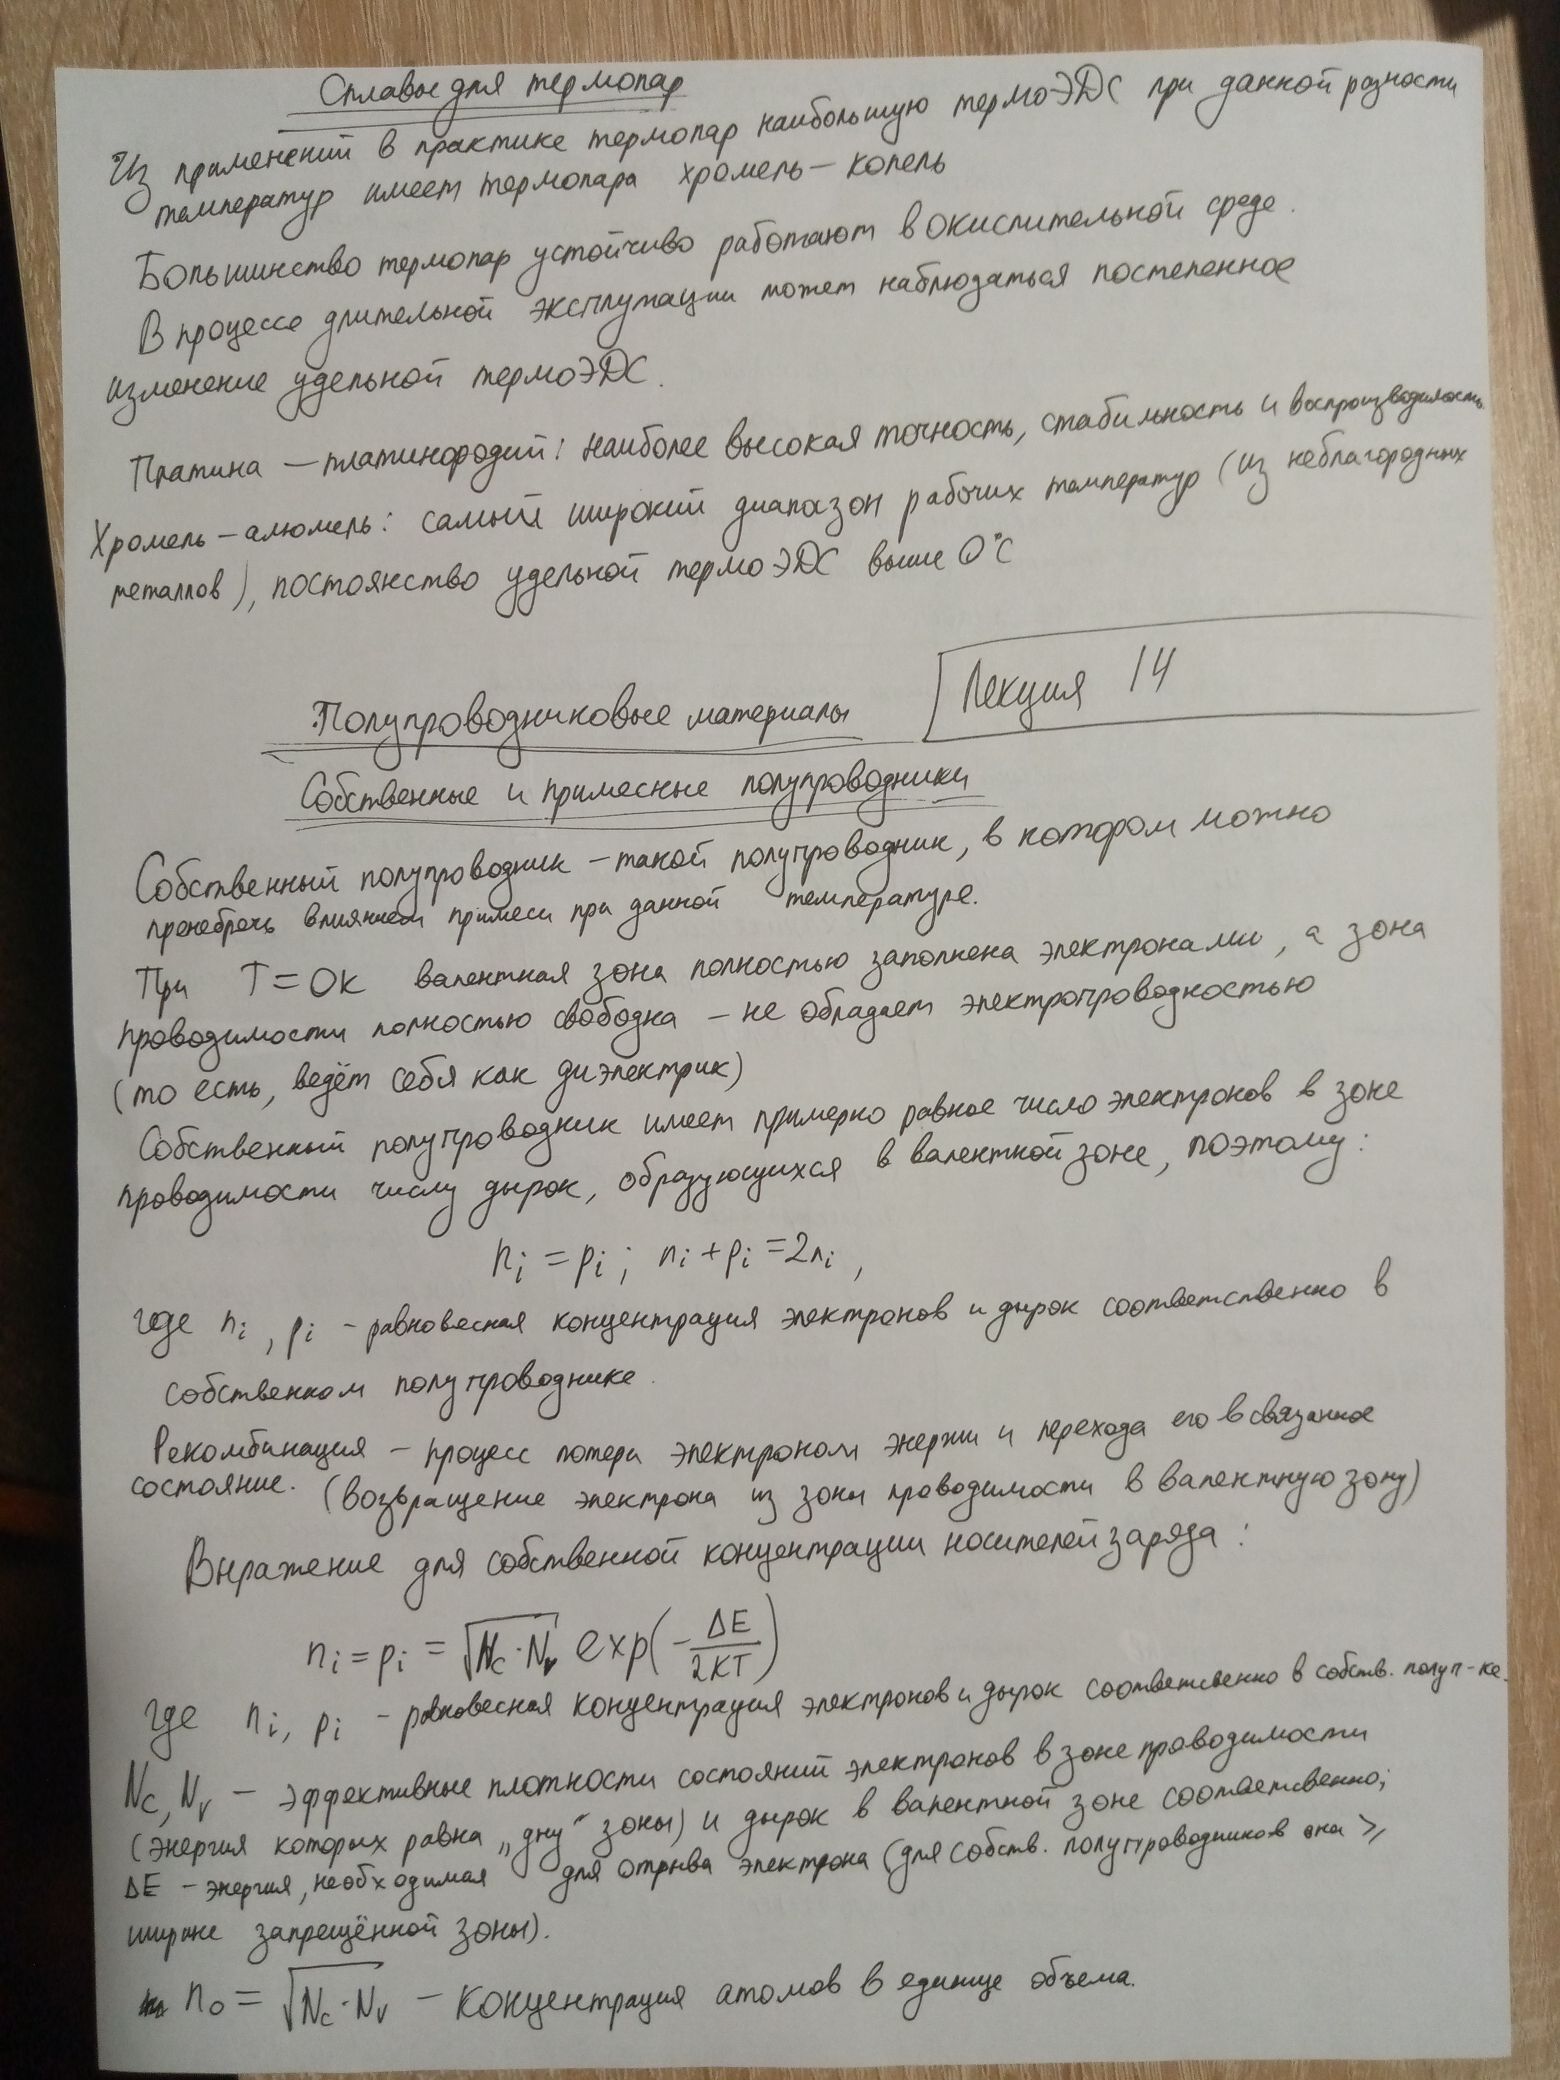 Сплавы для термопар
Из применений в практике термопар наибольшую термоЭДС при данной разности
температур имеет термопара хромель – копель
Большинство термопар устойчиво работают в окислительной среде.
В процессе длительной эксплутации может наблюдаться постепенное
изменение удельной термоЭДС.
Платина – платинородий: наиболее высокая точность, стабильность и воспроизводимость.
Хромель – алюмель: самый широкий диапазон рабочих температур (из неблагородных
металлов), постоянство удельной термоЭДС выше 0°C
Лекция 14
Полупроводниковые материалы
Собственные и примесные полупроводники
Собственный полупроводник – такой полупроводник, в котором можно
пренебречь влиянием примеси при данной температуре.
При T = 0K валентная зона полностью заполнена электронами, а зона
проводимости полностью свободна – не обладает электропроводностью
(то есть, ведёт себя как диэлектрик)
Собственный полупроводник имеет примерно равное число электронов в зоне
проводимости числу дырок, образующихся в валентной зоне, поэтому:
n_i = p_i ; n_i + p_i = 2n_i ,
где n_i, p_i – равновесная концентрация электронов и дырок соответственно в
собственном полупроводнике.
Рекомбинация – процесс потери электроном энергии и перехода его в связанное
состояние. (возвращение электрона из зоны проводимости в валентную зону)
Выражение для собственной концентрации носителей заряда:
n_i = p_i = √(N_c · N_v) exp(- ΔE / 2KT)
где n_i, p_i – равновесная концентрация электронов и дырок соответственно в собств. полуп-ке.
N_c, N_v – эффективные плотности состояний электронов в зоне проводимости
(энергия которых равна „дну“ зоны) и дырок в валентной зоне соответственно;
ΔE – энергия, необходимая для отрыва электрона (для собств. полупроводников она ≥
ширине запрещённой зоны).
n_0 = √(N_c · N_v) – концентрация атомов в единице объема.